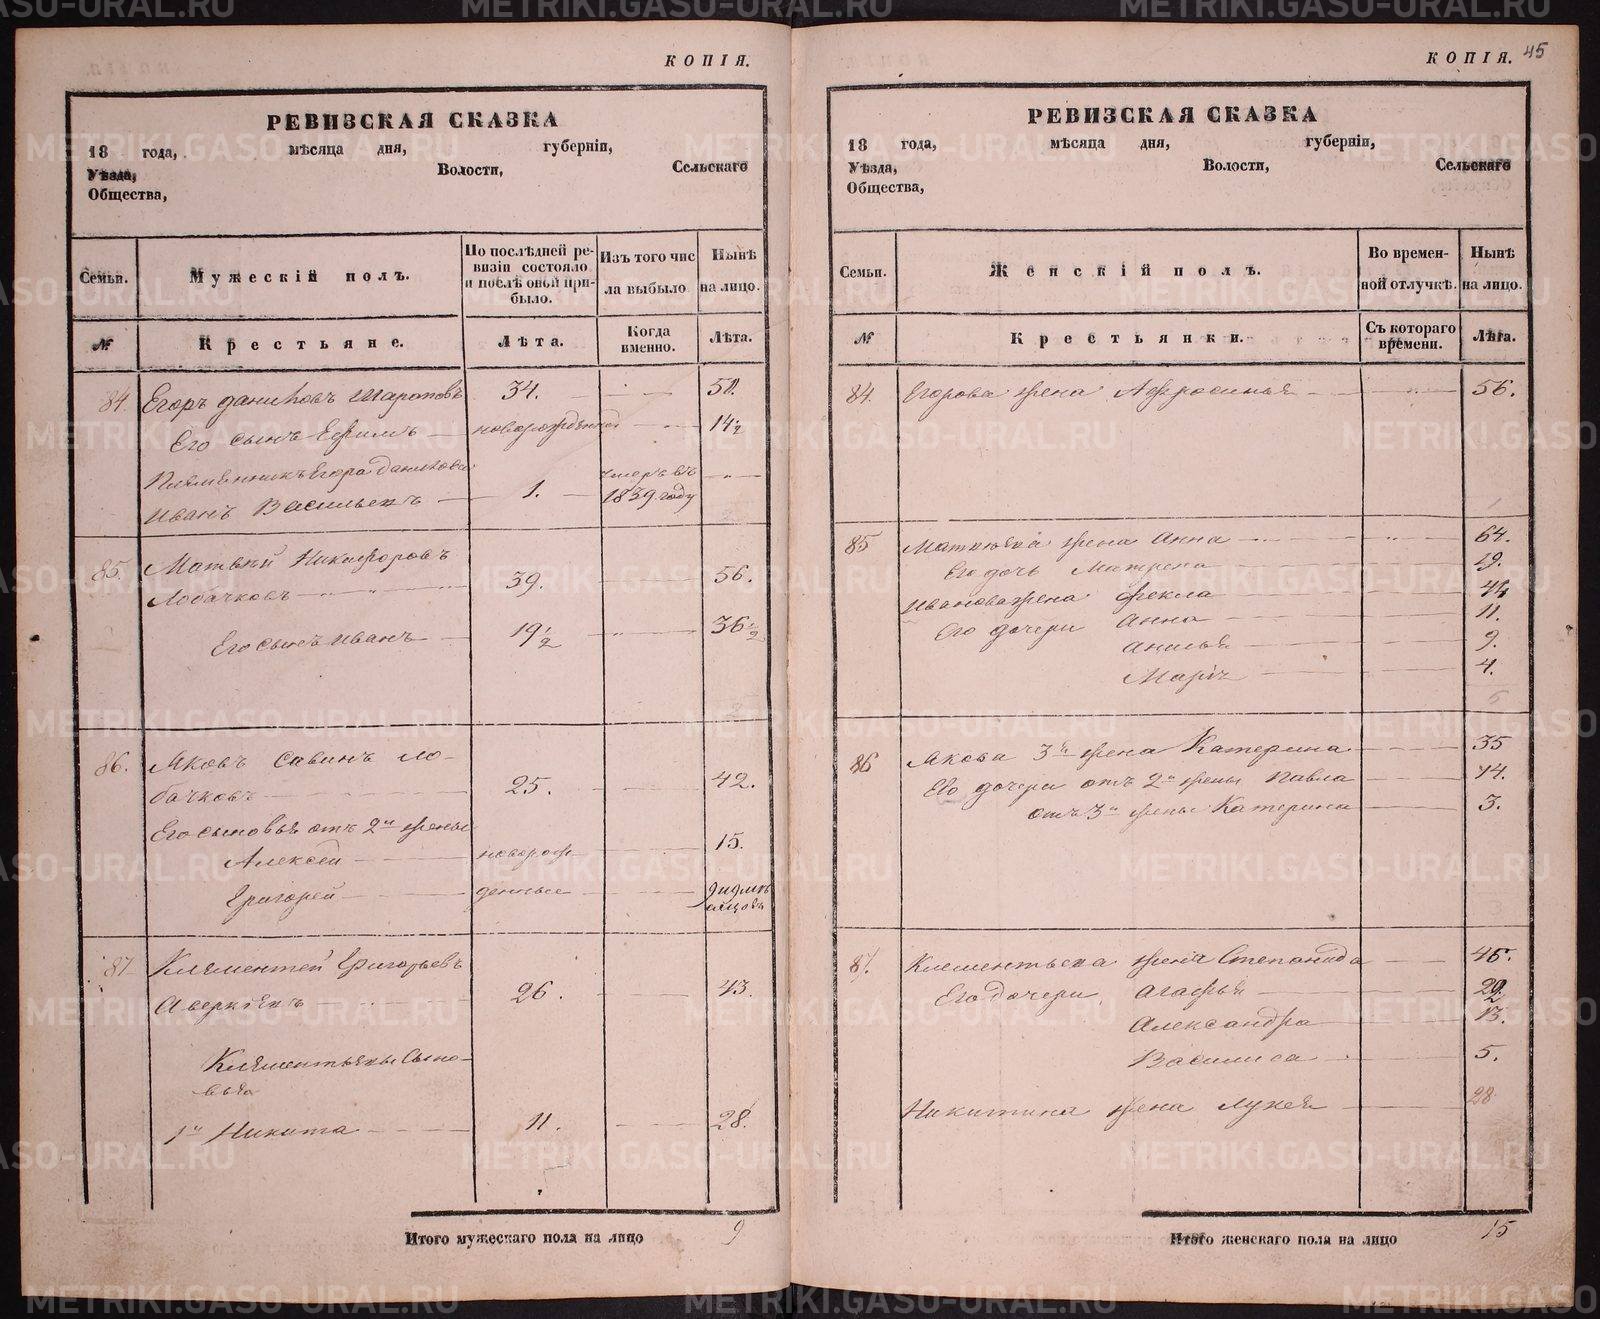 КОПІЯ.
РЕВИЗСКАЯ СКАЗКА
18 года, мѣсяца дня, губерніи,
Уѣзда, Волости, Сельскаго
Общества,
Семьи. Мужескій полъ. По послѣдней ревизіи состояло и послѣ оной прибыло. Изъ того числа выбыло Нынѣ на лицо.
№ Крестьяне. Лѣта. Когда именно. Лѣта.
84. Егоръ Даниловъ Шароповъ 34. 51.
Его сынъ Ефимъ новорожденный 14½
Племянникъ Егора Данилова
Иванъ Васильевъ 1. умеръ въ 1839 году
85. Матвѣй Никифоровъ
Лобачковъ 39. 56.
Его сынъ Иванъ 19½ 36½
86. Яковъ Савинъ Ло-
бачковъ 25. 42.
Его сыновья отъ 2й жены
Алексѣй новорож 15.
Григорей денные 9 ии мѣсяцовъ
87 Клементей Григорьевъ
Аверкіевъ 26. 43.
Клементьевы Сыно-
вья
1й Никита 11. 28.
Итого мужескаго пола на лицо 9
КОПІЯ. 45
РЕВИЗСКАЯ СКАЗКА
18 года, мѣсяца дня, губерніи,
Уѣзда, Волости, Сельскаго
Общества,
Семьи. Женскій полъ. Во временной отлучкѣ. Нынѣ на лицо.
№ Крестьянки. Съ котораго времени. Лѣта.
84. Егорова жена Афросинья 56.
85 Матвѣева жена Анна 64.
Его дочь Матрена 19.
Иванова жена Фекла
Его дочери Анна 11.
Анисья 9.
Марія 4.
86 Якова 3я жена Катерина 35
Его дочери отъ 2й жены Павла 14.
отъ 3й жены Катерина 3.
87. Клементьева жена Степанида 45.
Его дочери Агафья
Александра 13.
Василиса 5.
Никитина жена Лукея 28
Итого женскаго пола на лицо 15
METRIKI.GASO-URAL.RU